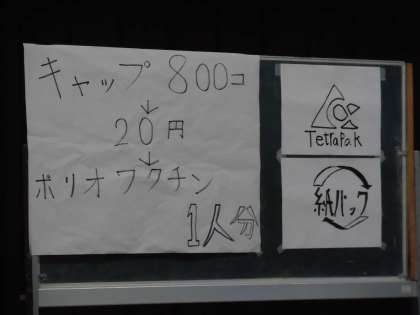 キャップ 800コ
↓
20円
↓
ポリオワクチン
1人分
Tetrapak
紙パック